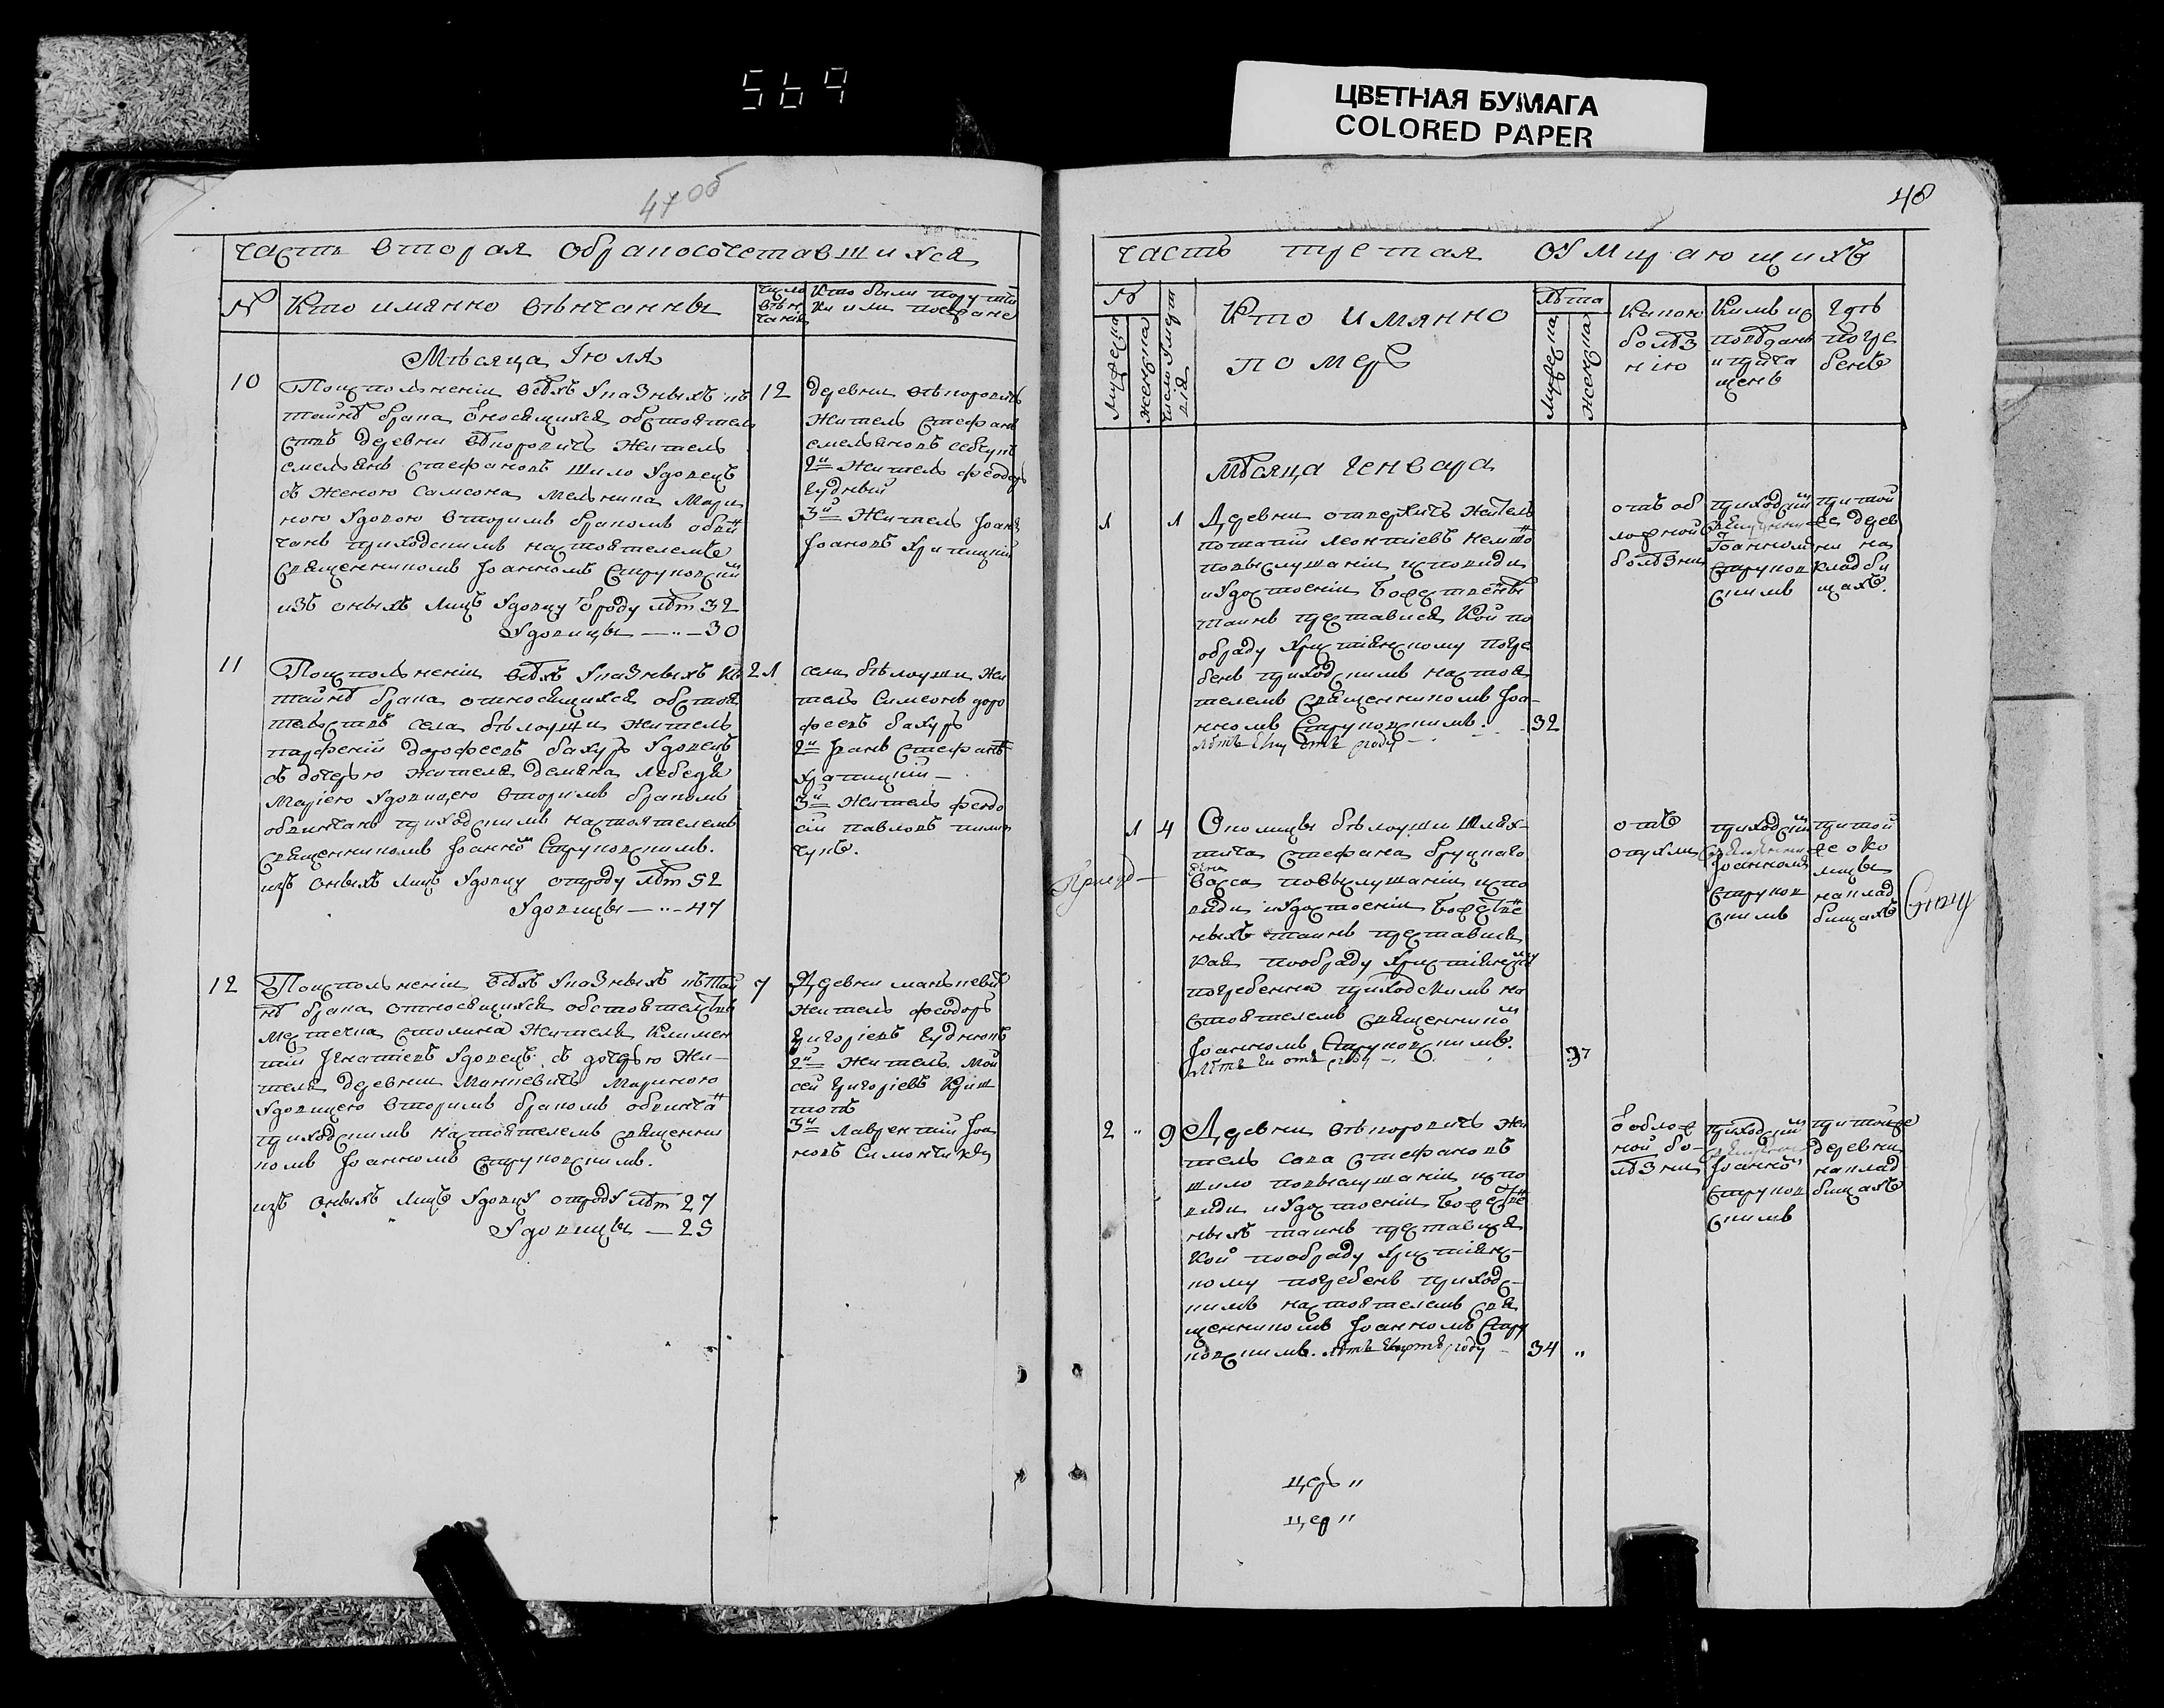 569
ЦВЕТНАЯ БУМАГА
COLORED PAPER
47 об
часть вторая обракосочетавшихся
№ Кто имянно вѣнчанны
число вѣнчанія
Кто были поручители или поезжане
Мѣсяца Іюля
10
По исполненіи всѣхъ указныхъ къ
тайнѣ брака относящихся обстоятель
ствъ деревни Вѣпоровичъ житель
емельянъ стефановъ шило удовецъ
съ женою самсона мельника Мари
ною удовою вторимъ бракомъ обвѣн
чанъ приходскимъ настоятелемъ
священникомъ Іоанномъ Струковским
изъ оныхъ лицъ удовцу отроду лѣт 32
Удовицы — 30
12
деревни вѣпоровичъ
житель стефанъ
емельяновъ
2й житель феодоръ
чудный
3й житель Іоаннъ
Іоановъ Хрипицкій
11
По исполненіи всѣхъ указныхъ къ
тайнѣ брака относящихся обстоя
тельствъ села бѣлоуши житель
парфеній дорофеевъ бахуръ удовецъ
съ дочерью жителя демяна лебедя
Маріею удовицею вторимъ бракомъ
обвинчанъ приходскимъ настоятелемъ
священникомъ Іоанном Струковскимъ.
изъ оныхъ лицъ удовцу отроду лѣт 52
Удовицы — 47
21
села бѣлоуши жи
тель Симеонъ доро
феевъ бахуръ
2й Іванъ Стефанъ
Храпицкій —
3й житель феодо
сій павловъ пили
чукъ.
12
По исполненіи всѣхъ указныхъ къ тай
нѣ брака относящихся обстоятельствъ
местечка столина жителя климен
тій Ігнатіевъ удовецъ съ дочерью жи-
теля деревни Манкевичъ Мариною
удовицею вторимъ бракомъ обвинча н
приходскимъ настоятелемъ священни
комъ Іоанномъ струковскимъ.
изъ оныхъ лицъ удовцу отроду лѣт 27
Удовицы — 25
7
деревни манкевич
житель феодоръ
григоріевъ чудиновъ
2й житель Мой
сей григоріевъ криш
топъ
3й лаврентій Іоа
новъ Симончикъ
48
часть третая оумирающихъ
№
Мужеска
женска
число умертвія
Кто имянно
помер
лѣта
Мужеска
женска
Какою
болѣз
нію
Кимъ ис
повѣданъ
и прича
щенъ
Гдѣ
погре
бенъ
Мѣсяца Генвара
1
1
Деревни отвержичъ житель
потапій леонтіевъ
по выслушаніи исповиди
и удостоеніи Божественых
таинъ преставися кой по
обраду христіянскому погре
бенъ приходскимъ настоя
телемъ священникомъ Іоа-
нномъ Струковскимъ.
лѣтъ ему отъ роду
32
отъ об
ложной
болѣзни
приходским
священник
Іоанном
струков
скимъ
при той
же дерев
ни на
кладби
щахъ.
Приезд
1
4
Околицы бѣлоуши шлях-
тича стефана бруцкаго
жена
васса по выслушаніи испо
види и удостоеніи Божестве
ныхъ таинъ преставися
кая по обраду христіянскому
погребенна приходскимъ на
стоятелемъ священником
Іоанномъ Струковскимъ.
лѣтъ ей отъ роду
37
отъ
опухли
приходским
священник
Іоанном
струков
скимъ
при той
же око
лицы
на клад
бищахъ
2 "
9
Деревни вѣпоровичъ жи
тель сава стефановъ
шило по выслушаніи испо
види и удостоеніи Божестве
ныхъ таинъ преставися
кой по обраду христіянс-
кому погребенъ приходс-
кимъ настоятелемъ свя
щенникомъ Іоанномъ Стру
ковскимъ. лѣтъ ему отъ роду
34 "
облож
ной бо-
лѣзни
приходским
священник
Іоанном
струков
скимъ
при той же
деревни
на клад
бищахъ